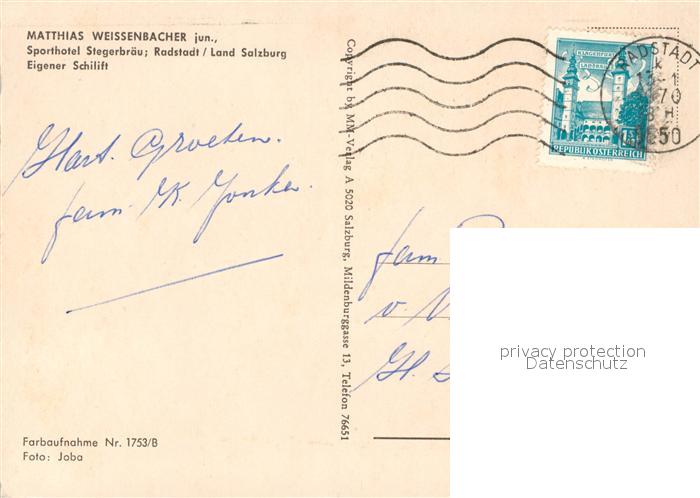 MATTHIAS WEISSENBACHER jun.,
Sporthotel Stegerbräu; Radstadt / Land Salzburg
Eigener Schilift
Hart. Groeten.
fam. K. Jonker.
Farbaufnahme Nr. 1753/B
Foto: Joba
Copyright by MM-Verlag A 5020 Salzburg, Mildenburggasse 13, Telefon 76651
KLAGENFURT
LANDHAUS
REPUBLIK ÖSTERREICH
RADSTADT
fam
v.
privacy protection
Datenschutz